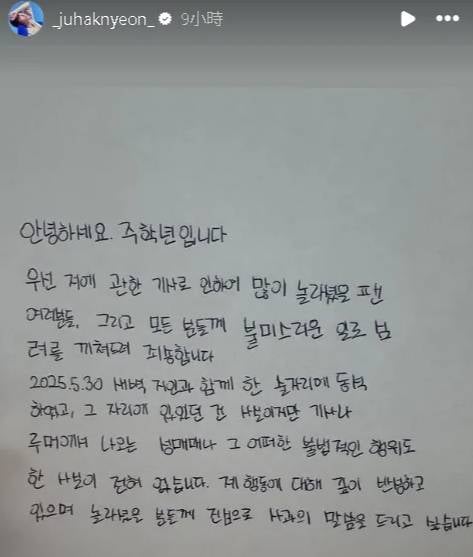 _juhaknyeon_ 9小時
안녕하세요. 주학년입니다
우선 저에 관한 기사로 인하여 많이 놀라셨을 팬
여러분들, 그리고 모든 분들께 불미스러운 일로 심
려를 끼쳐드려 죄송합니다
2025.5.30 새벽 지인과 함께 한 술자리에 동석
하였고, 그 자리에 있었던 건 사실이지만 기사나
루머에서 나오는 성매매나 그 어떠한 불법적인 행위도
한 사실이 전혀 없습니다. 제 행동에 대해 깊이 반성하고
있으며 놀라셨을 분들께 진심으로 사과의 말씀을 드리고 싶습니다